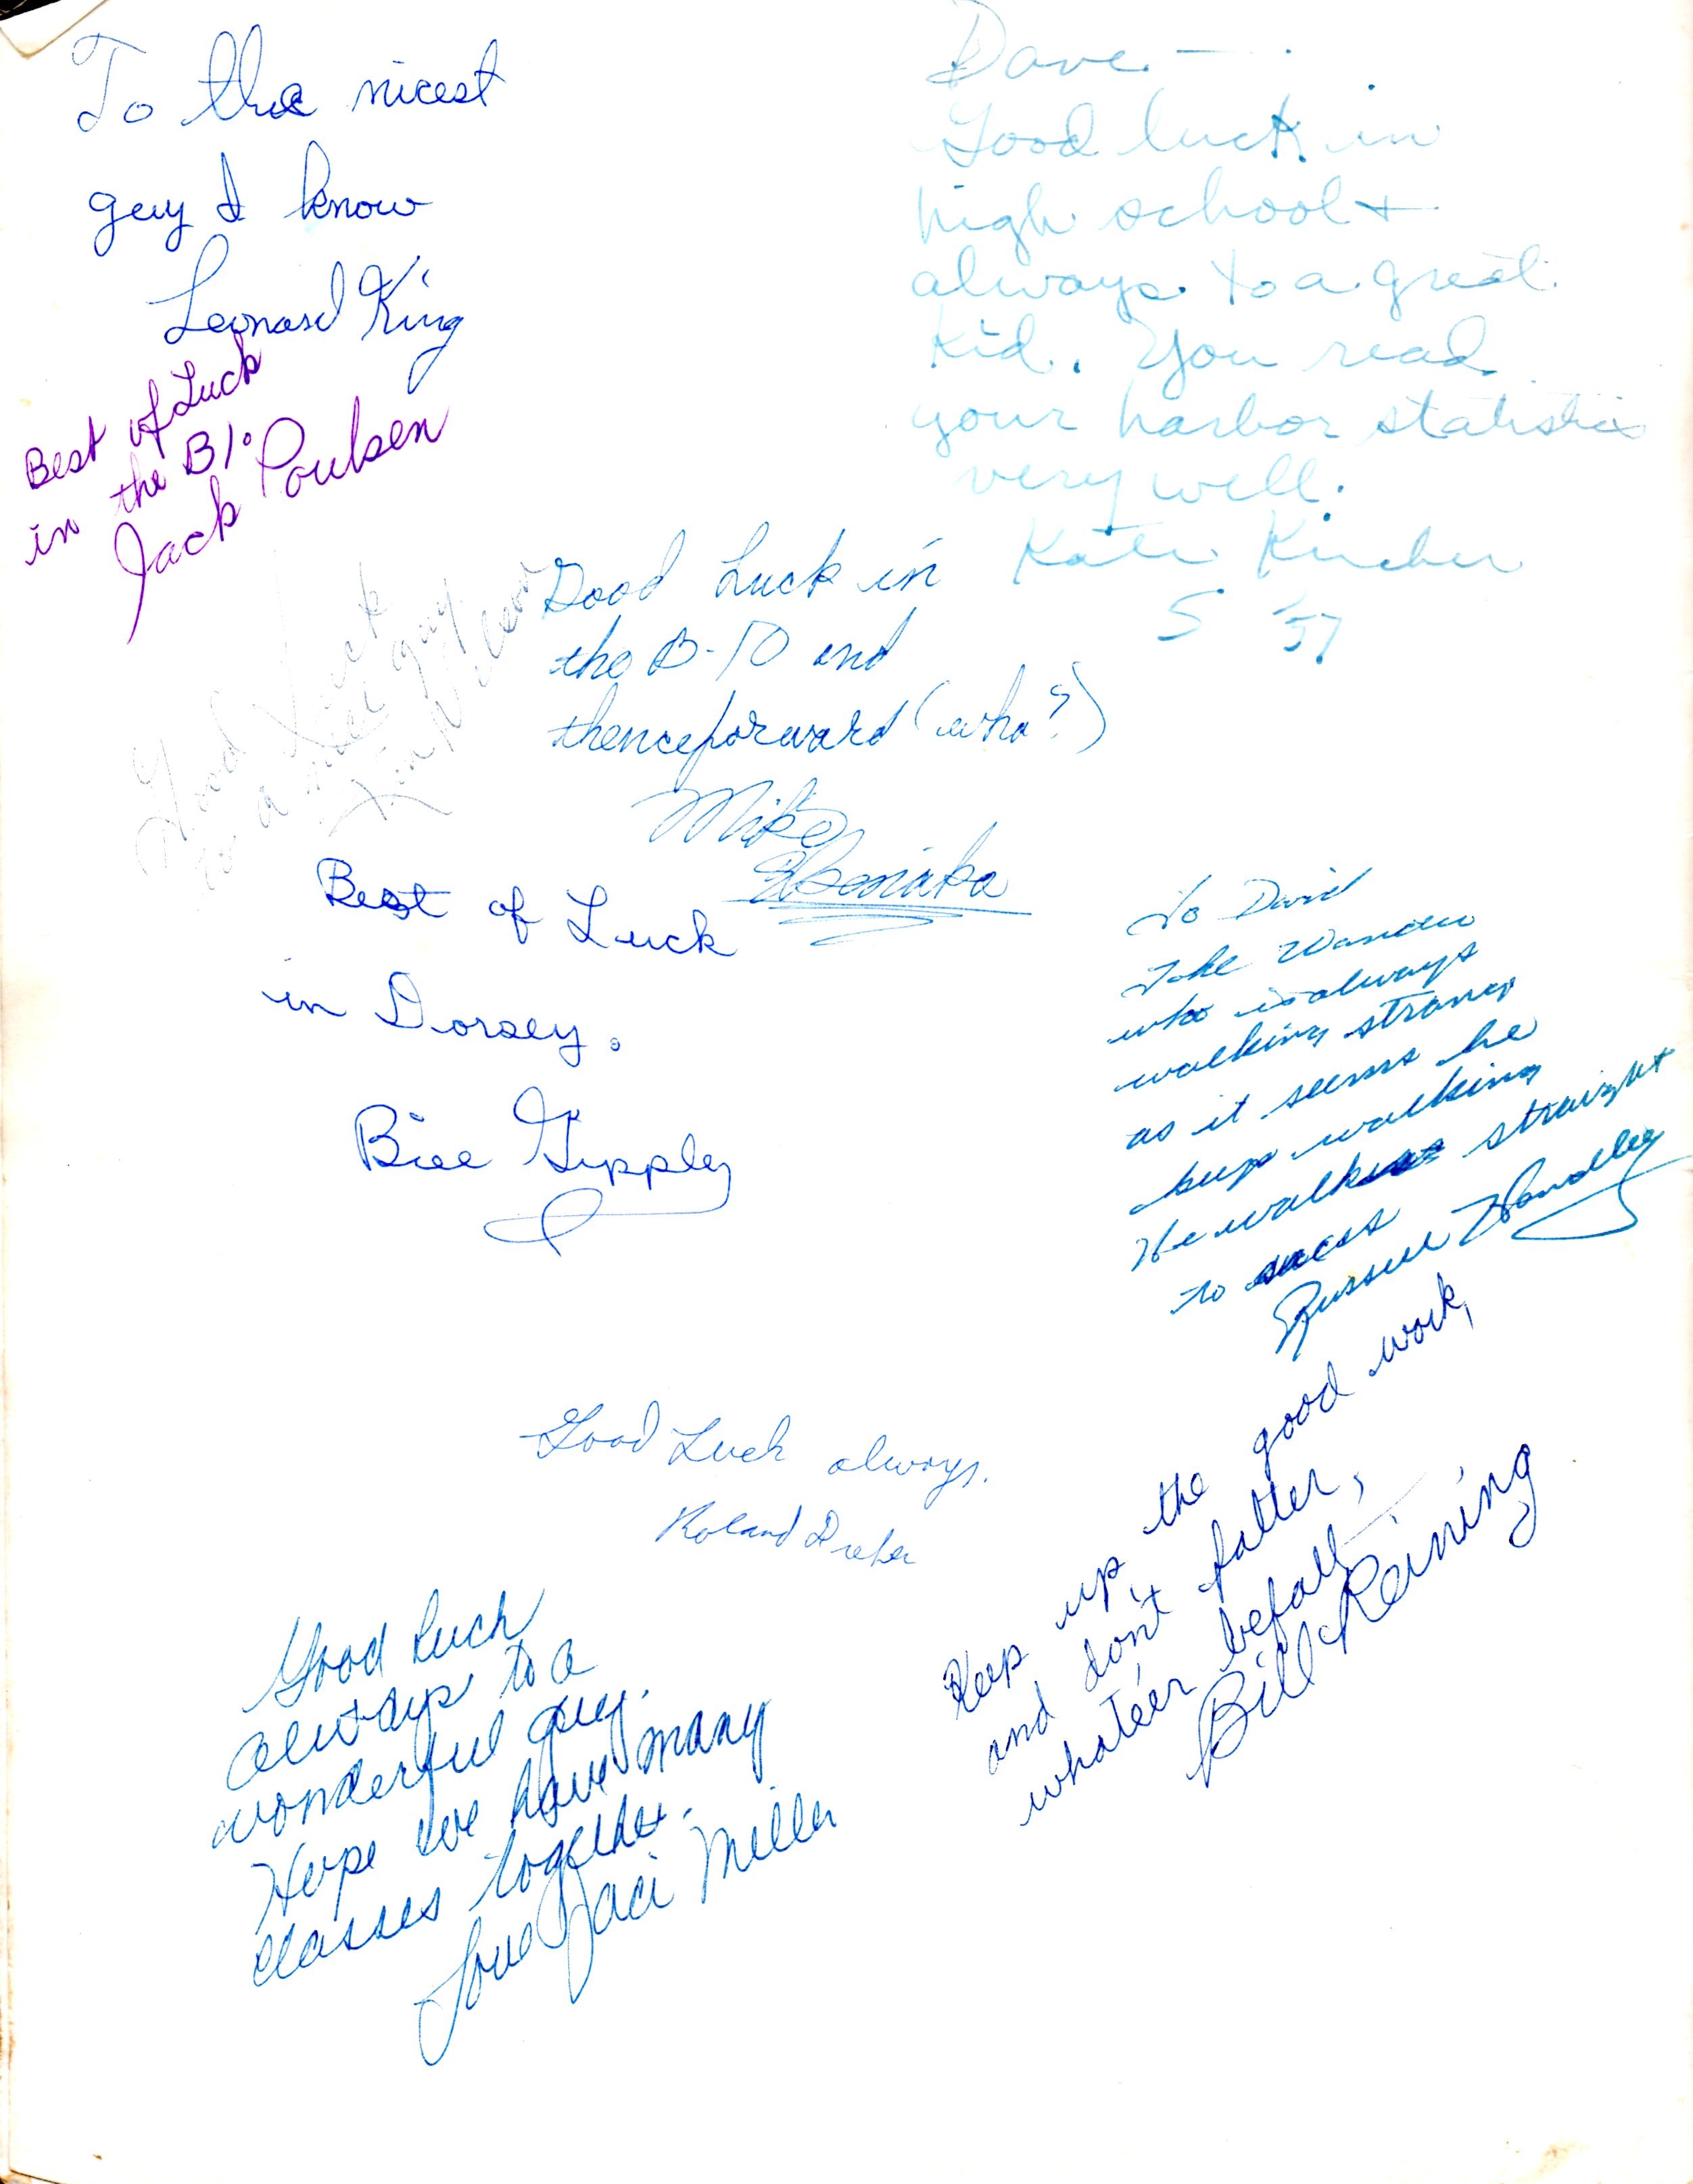 To the nicest
guy I know
Leonard King
Dave —
Good luck in
high school +
always to a great
kid. You read
your harbor statistics
very well.
Kate Kircher
S '57
Best of Luck
in the B10
Jack Poulsen
Good Luck
to a nice guy
Good Luck in
the B-10 and
thenceforward (who?)
Mike
Best of Luck
in Dorsey.
Bill Gippley
To David
who is always
walking strange
as it seems he
keeps walking
He walks straight
to sucess
Russell Handley
Good Luck always.
Roland Dreher
Keep up the good work,
and don't falter,
whate'er befall
Bill Reining
Good luck
always to a
wonderful guy.
Hope we have many
classes together.
Love Jaci Miller